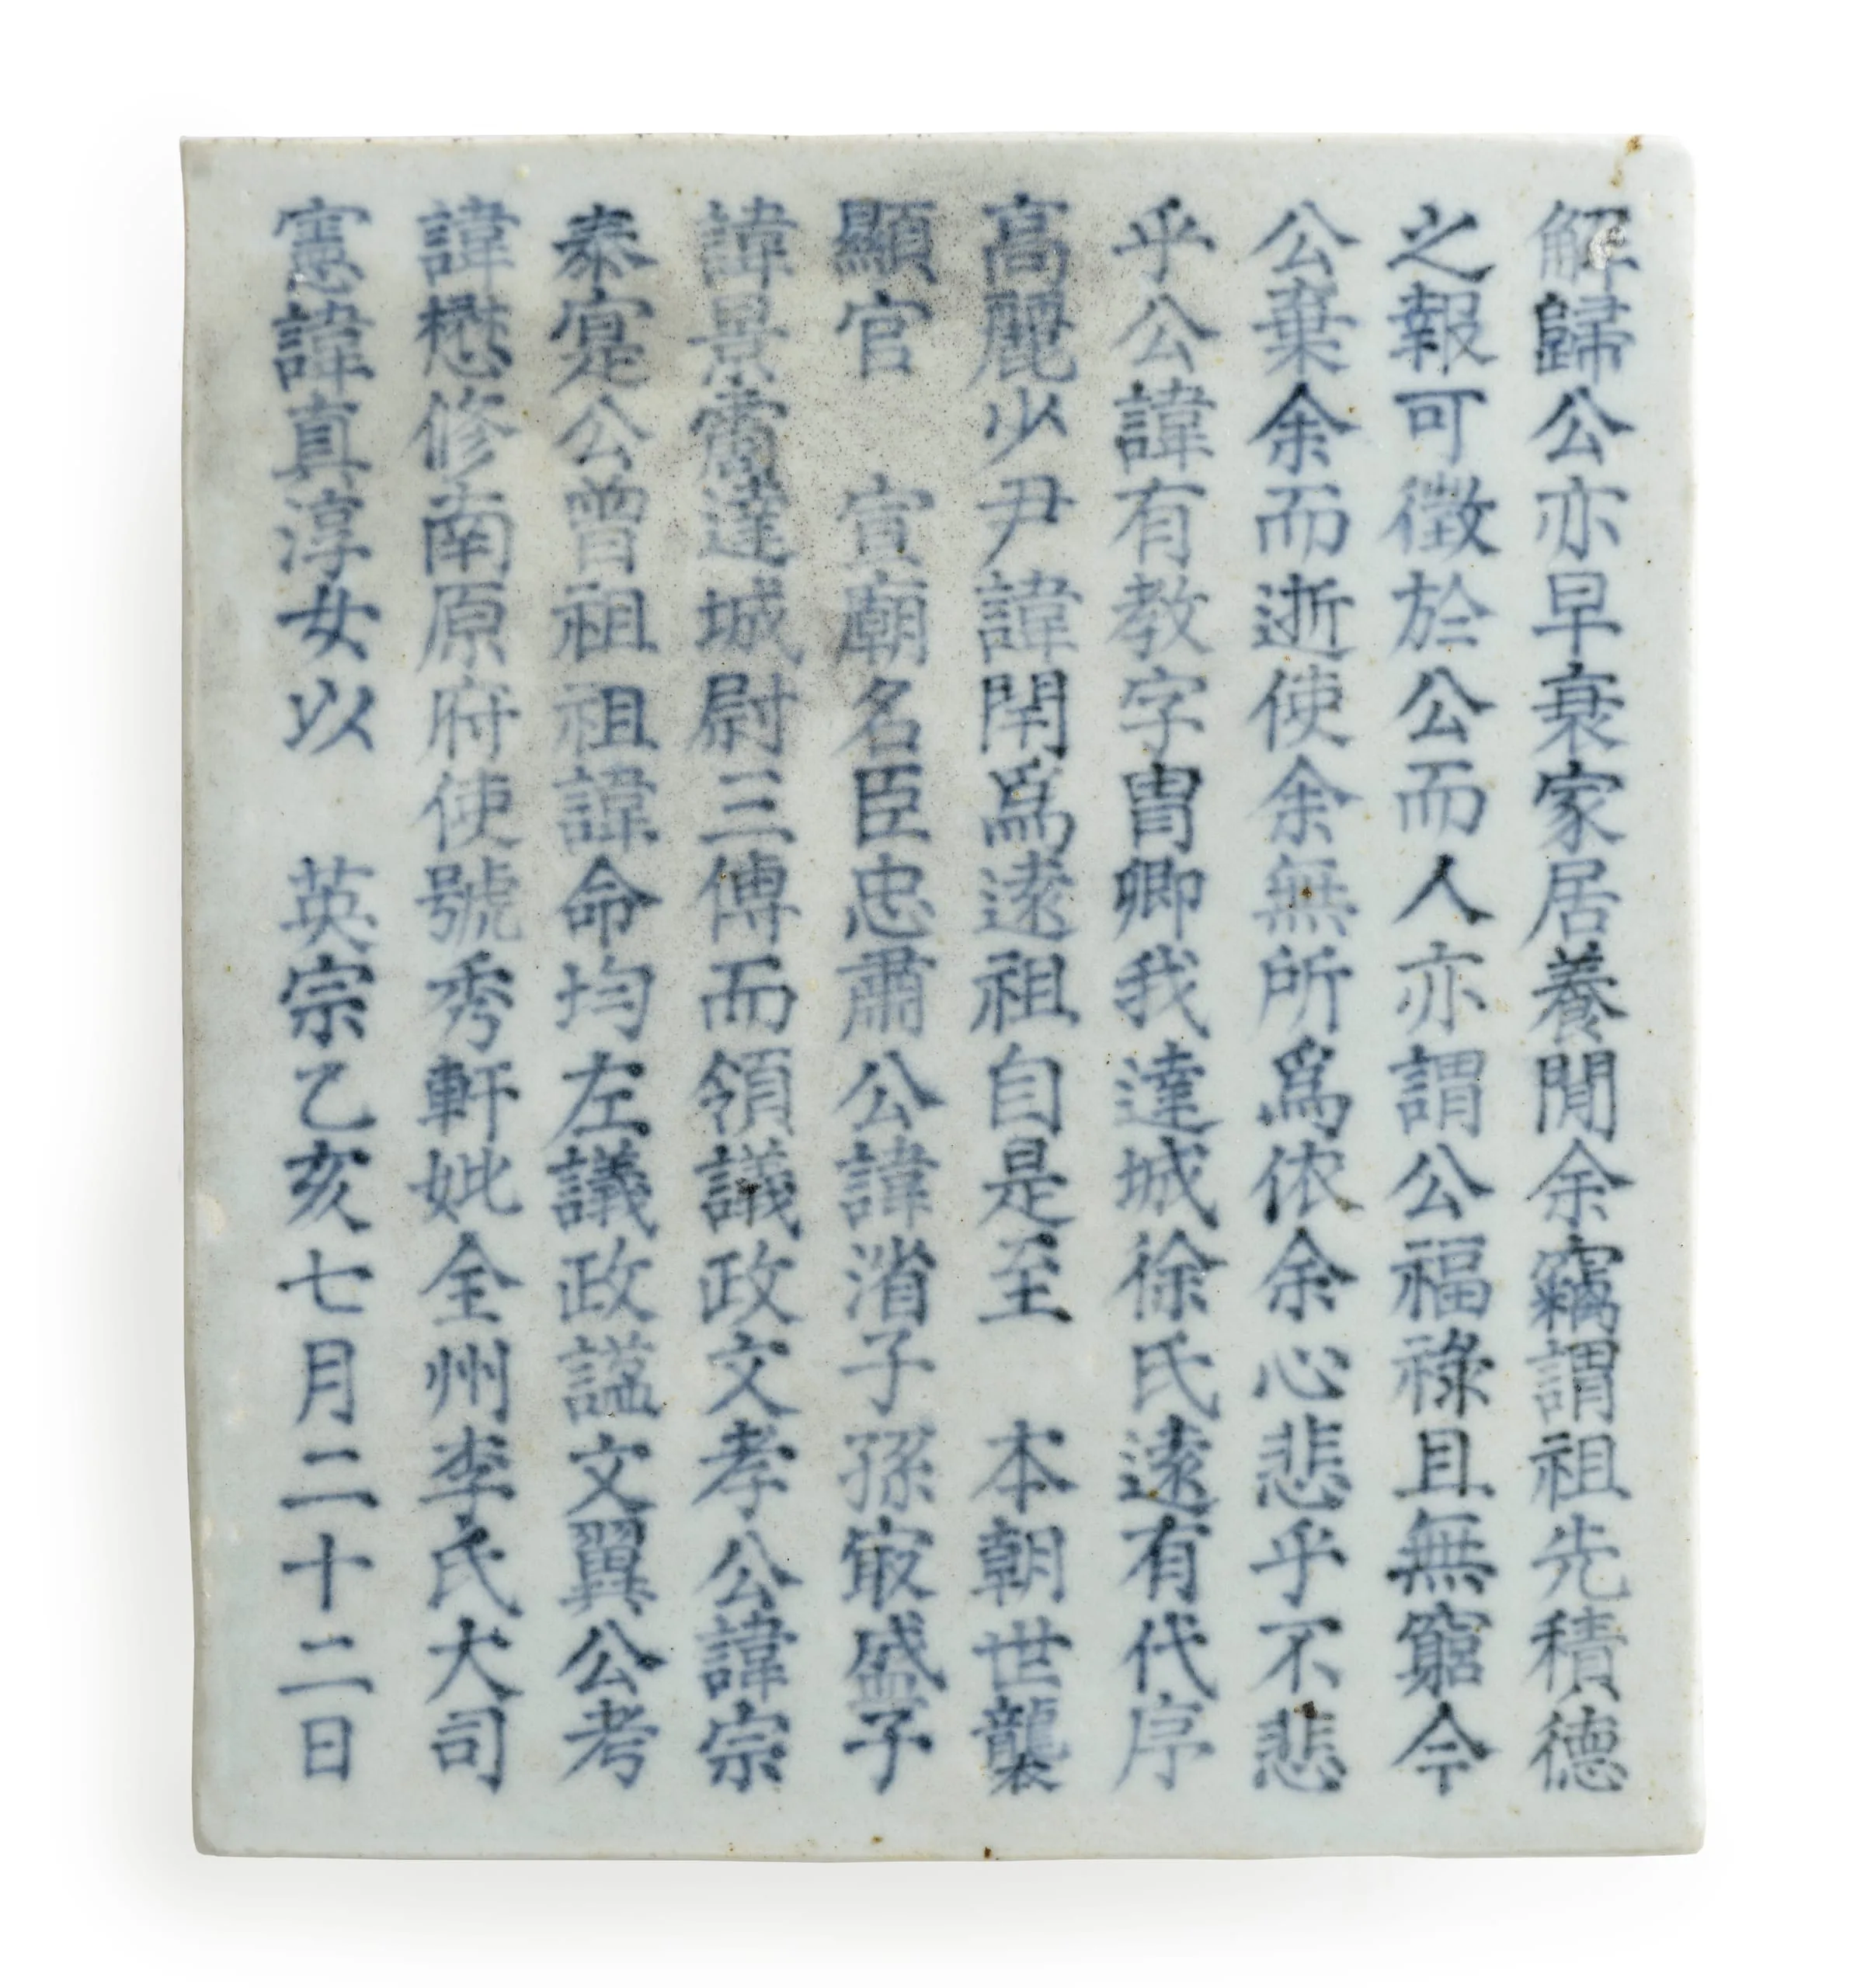 解歸公亦早衰家居養閒余竊謂祖先積德
之報可徵於公而人亦謂公福祿且無窮今
公棄余而逝使余無所爲依余心悲乎不悲
乎公諱有教字冑卿我達城徐氏遠有代序
高麗少尹諱閈爲遠祖自是至 本朝世襲
顯官 宣廟名臣忠肅公諱渻子孫㝡盛子
諱景霌達城尉三傳而領議政文孝公諱宗
泰寔公曾祖祖諱命均左議政謚文翼公考
諱懋修南原府使號秀軒妣全州李氏大司
憲諱真淳女以 英宗乙亥七月二十二日